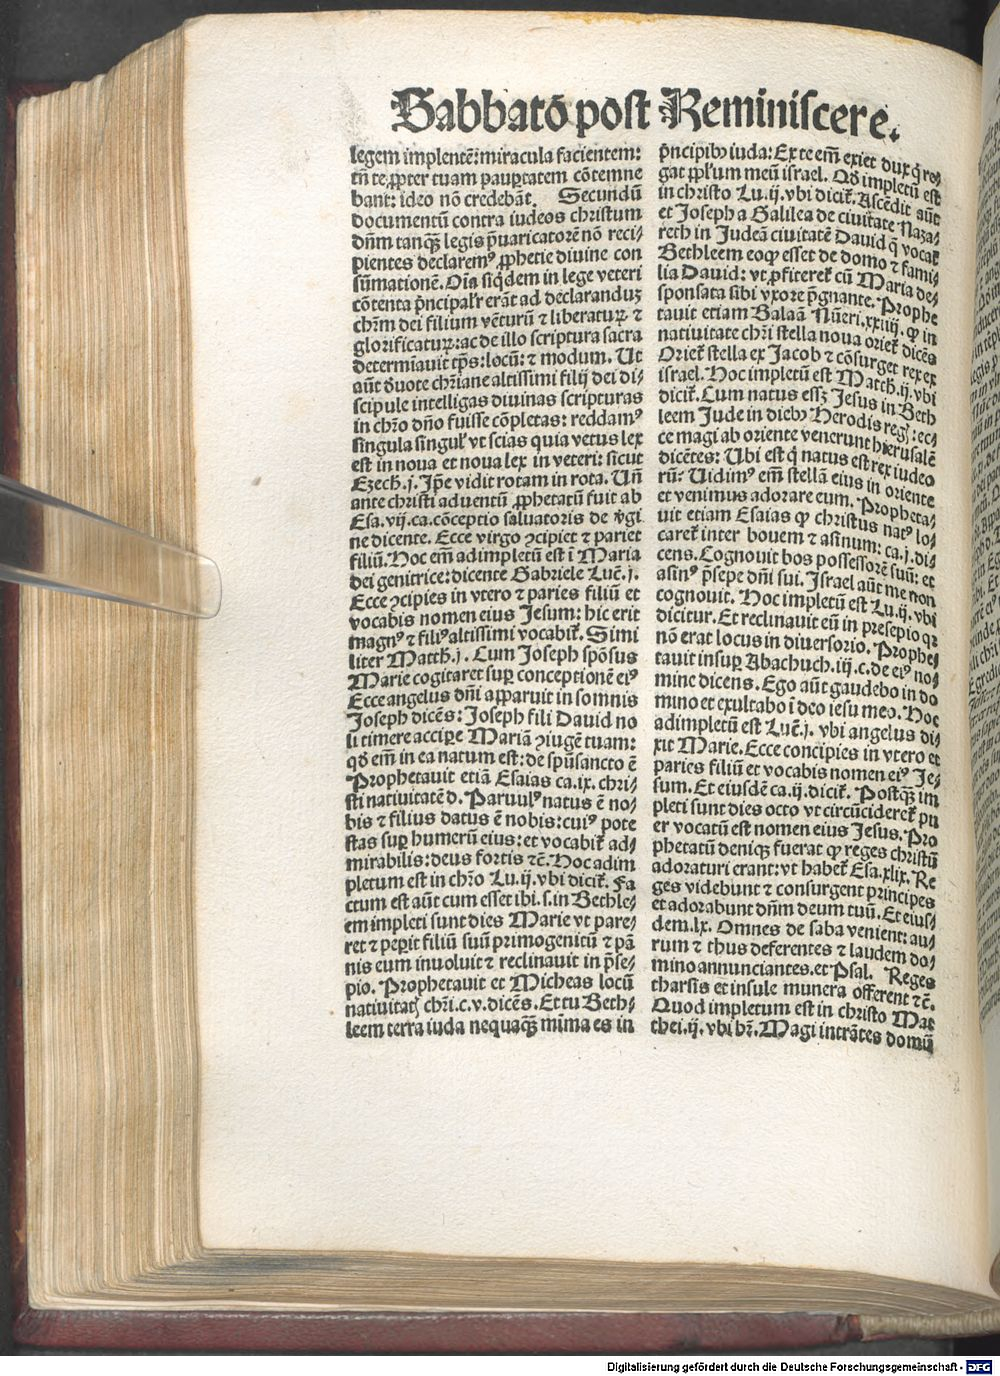 Sabbatō post Reminiscere.
legem implentē: miracula facientem:
tn̄ te ꝓpter tuam paupertatem cōtemne
bant: ideo nō credebāt. Secundū
documentū contra iudeos christum
dn̄m tanqȝ legis p̄uaricatorē nō reci-
pientes declaremꝰ ꝓphetie diuine con
sūmationē. Oīa siq̇dem in lege veteri
cōtenta p̄ncipalr̄ erāt ad declarandūȝ
chr̄m dei filium vēturū ⁊ liberaturꝝ ⁊
glorificaturꝝ: ac de illo scriptura sacra
determīauit tp̄s: locū: ⁊ modum. Ut
aūt deuote chr̄iane altissimi filij dei di-
scipule intelligas diuinas scripturas
in chr̄o dn̄o fuisse cōpletas: reddamꝰ
singula singul' vt scias quia vetus lex
est in noua et noua lex in veteri: sicut
Ezech. j. Ip̄e vidit rotam in rota. Un̄
ante christi aduentū ꝓphetatū fuit ab
Esa. vij. ca. cōceptio saluatoris de v̇gi
ne dicente. Ecce virgo ꝯcipiet ⁊ pariet
filiū. Hoc em̄ adimpletū est ī Maria
dei genitrice: dicente Gabriele Luc̄. j.
Ecce ꝯcipies in vtero ⁊ paries filiū et
vocabis nomen eius Jesum: hic erit
magnꝰ ⁊ filiꝰ altissimi vocabit̄. Simi
liter Matth. j. Cum Joseph spōsus
Marie cogitaret suꝑ conceptionē eiꝰ
Ecce angelus dn̄i apparuit in somnis
Joseph dicēs: Joseph fili David no
li timere accipere Mariā ꝯiugē tuam:
qđ em̄ in ea natum est: de spūsancto ē
Prophetauit etiā Esaias ca. ix. chri-
sti natiuitatē d. Paruulꝰ natus ē no-
bis ⁊ filius datus ē nobis: cuiꝰ pote
stas suꝑ humerū eius: et vocabit̄ ad-
mirabilis: deus fortis ⁊c̄. Hoc adim
pletum est in chr̄o Lu. ij. vbi dicit̄. Fa
ctum est aūt cum esset ibi. s. in Bethle-
em impleti sunt dies Marie vt pare-
ret ⁊ peꝑit filiū suū primogenitū ⁊ pā
nis eum inuoluit ⁊ reclinauit in p̄se-
pio. Prophetauit et Micheas locū
natiuitatꝭ chr̄i. c. v. dicēs. Et tu Beth-
leem terra iuda nequaqȝ mīma es in
p̄ncipibꝰ iuda: Ex te em̄ exiet dux q̇ re-
gat ppl̄um meū israel. Qđ impletū est
in christo Lu. ij. vbi dicit̄. Ascēdit aūt
et Joseph a Galilea de ciuitate Naza-
reth in Judeā ciuitatē David q̄ vocat̄
Bethleem eo ꝙ esset de domo ⁊ fami-
lia David: vt ꝓfiteret̄ cū Maria de-
sponsata sibi vxore p̄gnante. Prophe
tauit etiam Balaā Nūeri. xxiiij. ꝙ in
natiuitate chr̄i stella noua oriet̄ dicēs
Oriet̄ stella ex Jacob ⁊ cōsurget rex ex
israel. Hoc impletū est Matth. ij. vbi
dicit̄. Cum natus essȝ Jesus in Beth
leem Jude in diebꝰ Herodis regꝭ: ec-
ce magi ab oriente venerunt hierusalē
dicētes: Ubi est q̇ natus est rex iudeo
rū: Uidimꝰ em̄ stellā eius in oriente
et venimus adorare eum. Propheta-
uit etiam Esaias ꝙ christus natꝰ lo-
caret̄ inter bouem ⁊ asinum: ca. j. di-
cens. Cognouit bos possessorē suū: et
asinꝰ p̄sepe dn̄i sui. Israel aūt me non
cognouit. Hoc impletū est Lu. ij. vbi
dicitur. Et reclinauit eū in presepio qr
nō erat locus in diuersorio. Prophe-
tauit insuꝑ Abachuch. iij. c. de eiꝰ no-
mine dicens. Ego aūt gaudebo in do
mino et exultabo ī deo iesu meo. Hoc
adimpletū est Luc̄. j. vbi angelus di-
xit Marie. Ecce concipies in vtero et
paries filiū et vocabis nomen eiꝰ Je-
sum. Et eiusdē ca. ij. dicit̄. Postqȝ im
pleti sunt dies octo vt circūcideret̄ pu
er vocatū est nomen eius Jesus. Pro
phetatū deniqȝ fuerat ꝙ reges christū
adoraturi erant: vt habet̄ Esa. xlix. Re
ges videbunt ⁊ consurgent principes
et adorabunt dn̄m deum tuū. Et eius-
dem. lx. Omnes de saba venient: au-
rum ⁊ thus deferentes ⁊ laudem do-
mino annunciantes. et Psal. Reges
tharsis et insule munera offerent ⁊c̄.
Quod impletum est in christo Mat
thei. ij. vbi hr̄. Magi intrātes domū
Digitalisierung gefördert durch die Deutsche Forschungsgemeinschaft - DFG